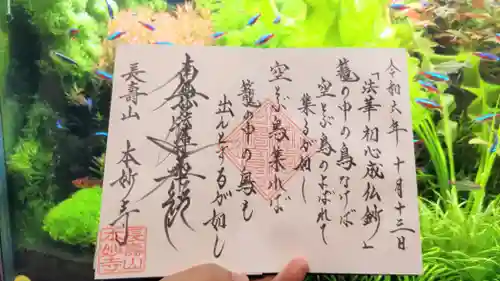 令和六年 十月十三日
「法華初心成仏鈔」
籠の中の鳥なけば
空とぶ鳥のよばれて
集るが如し
空とぶ鳥集れば
籠の中の鳥も
出んとするが如し
南無妙法蓮華経
長壽山 本妙寺
長壽山
本妙寺